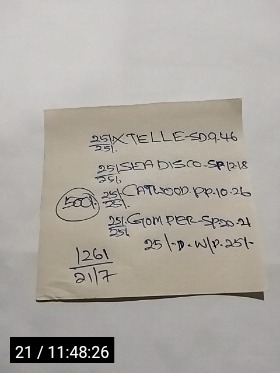 25/- XTELLE-SD.9.46
25/-
25/- SEADISCO-SP.12.18
25/-
500/- 25/- CATWOOD.PP.10.26
25/-
25/- GOMPER-SP
25/-
25/-D.W/P.25/-
1261
21/7
21 / 11:48:26